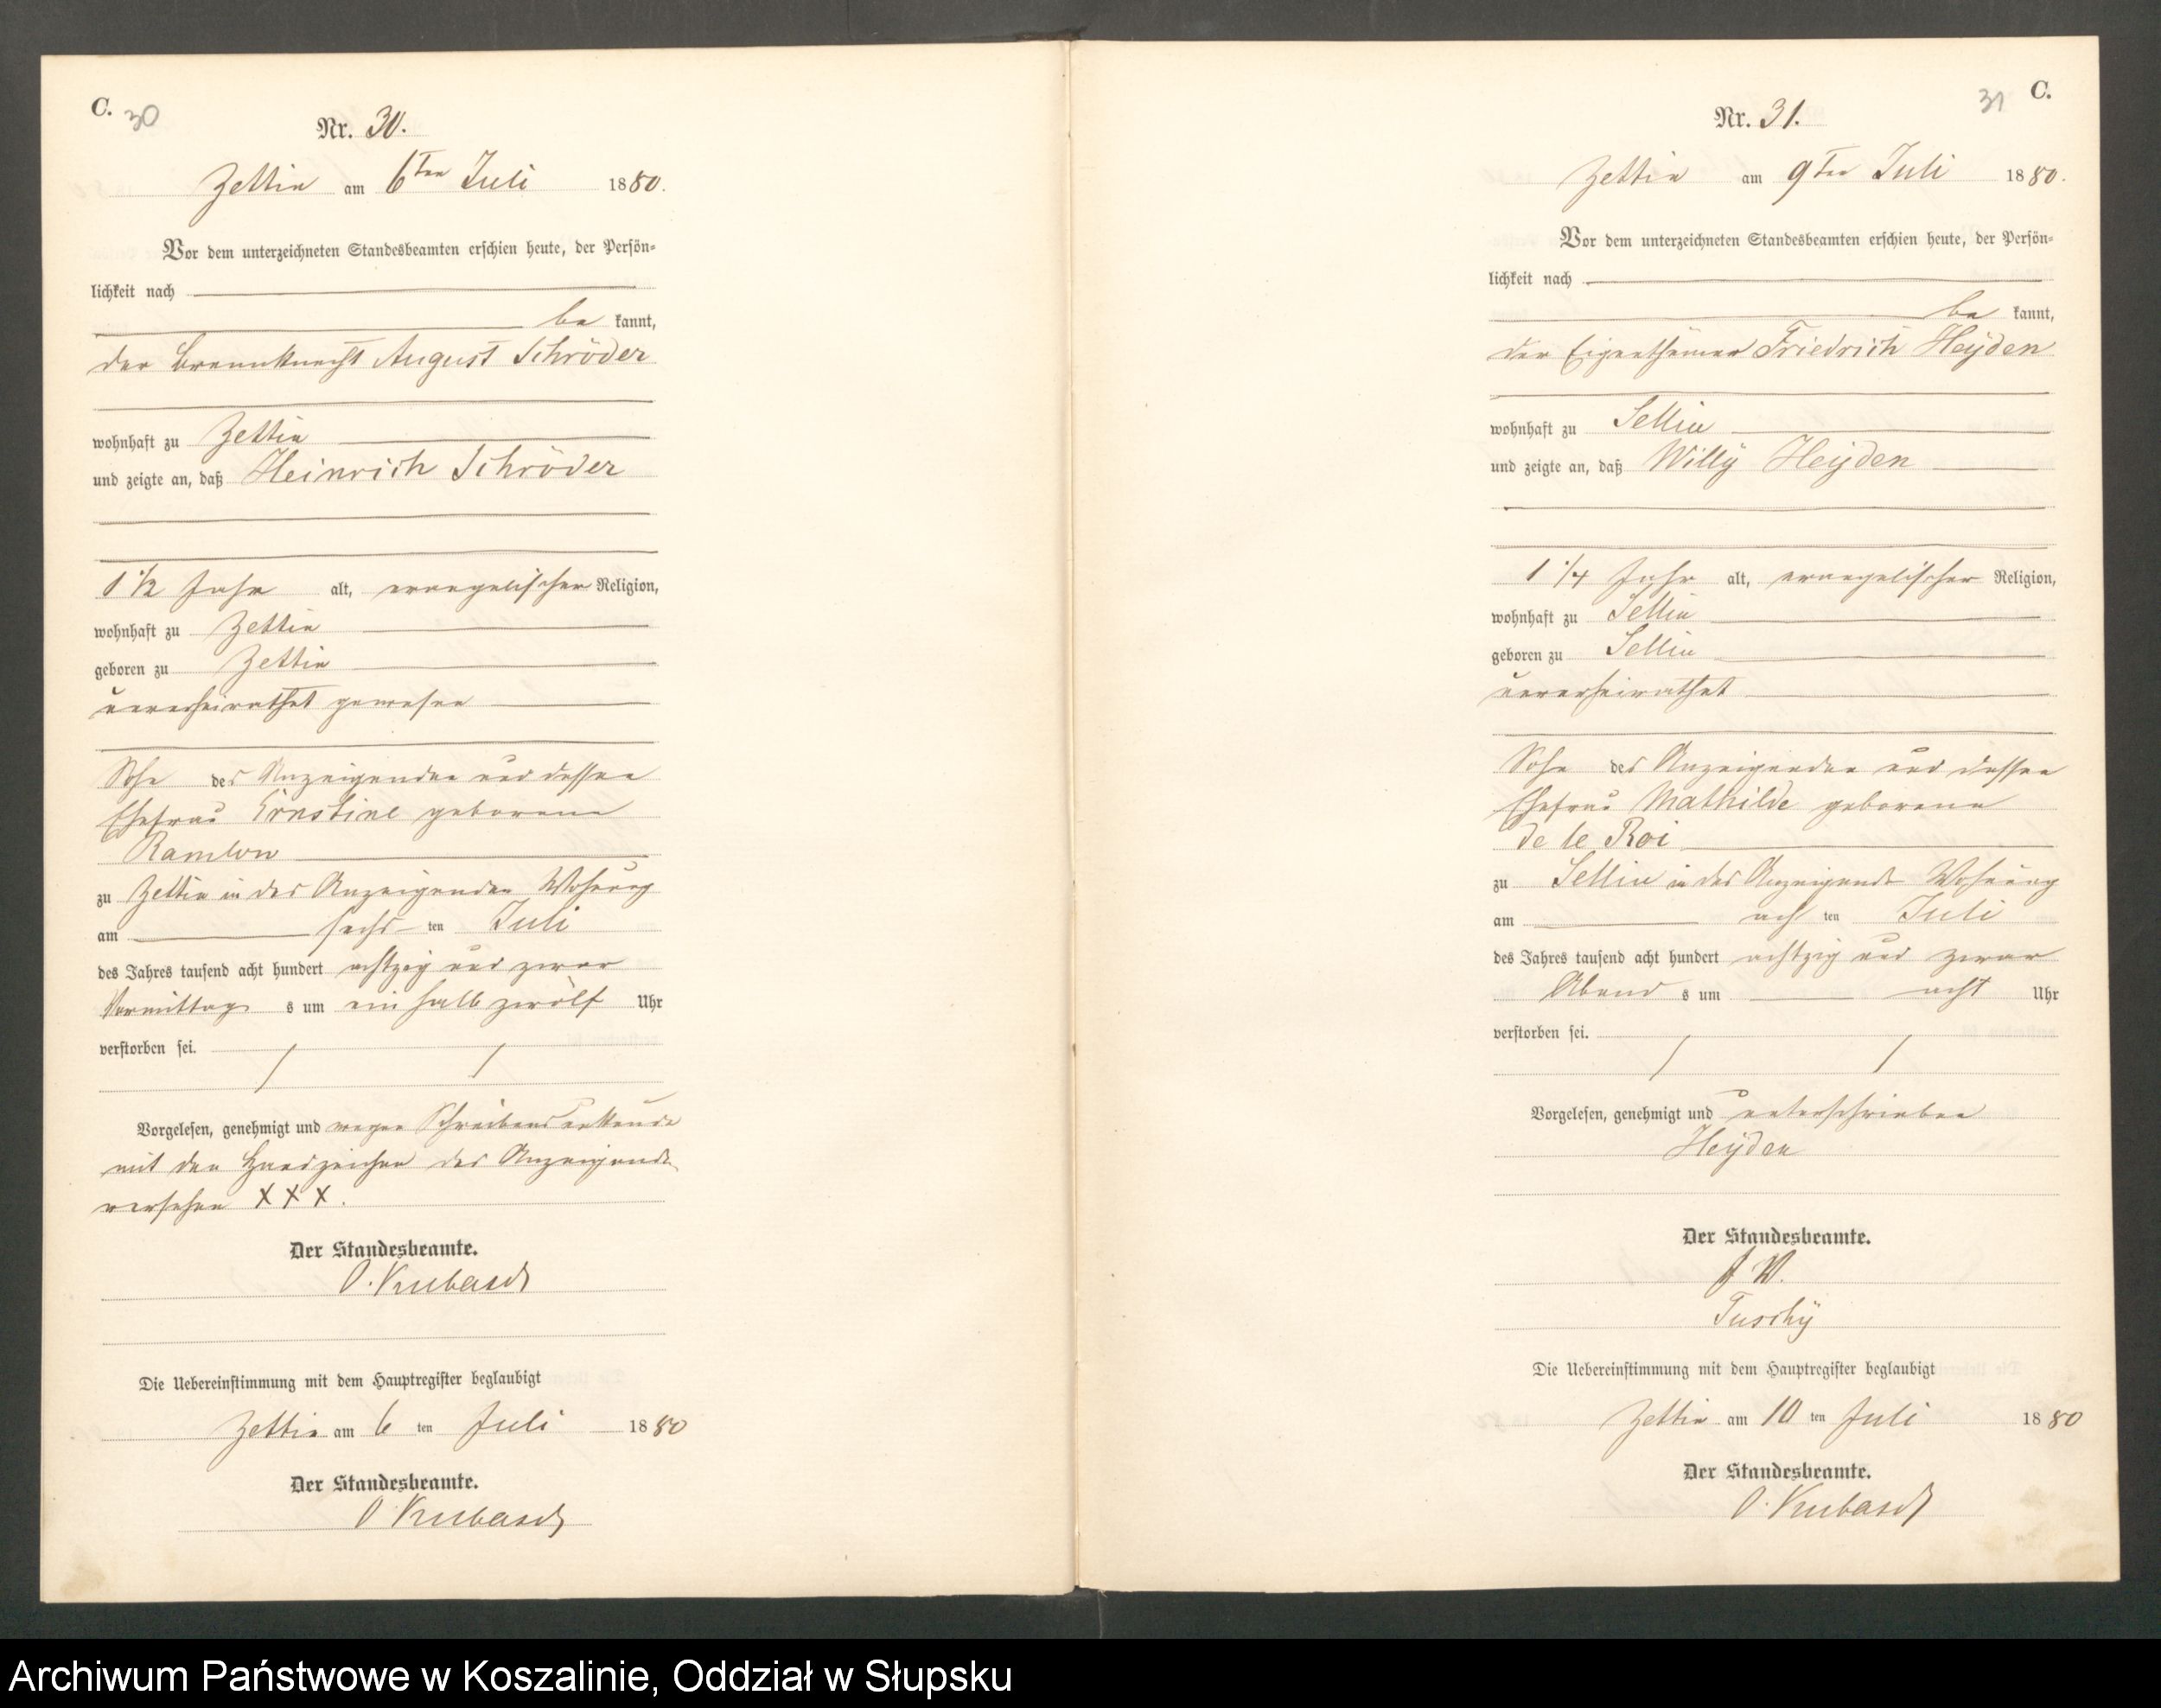 C. 30
Nr. 30.
Zettin am 6ten Juli 1880.
Vor dem unterzeichneten Standesbeamten erschien heute, der Persön-
lichkeit nach
be kannt,
der Brennknecht August Schröder
wohnhaft zu Zettin
und zeigte an, daß Heinrich Schröder
1 1/2 Jahr alt, evangelischer Religion,
wohnhaft zu Zettin
geboren zu Zettin
unverheirathet gewesen
Sohn des Anzeigenden und dessen
Ehefrau Ernstine geborene
Ramlow
zu Zettin in des Anzeigenden Wohnung
am sechs ten Juli
des Jahres tausend acht hundert achtzig und zwar
Vormittag s um ein halb zwölf Uhr
verstorben sei.
Vorgelesen, genehmigt und wegen Schreibensunkunde
mit den Handzeichen des Anzeigenden
versehen XXX.
Der Standesbeamte.
O. Kubasch
Die Uebereinstimmung mit dem Hauptregister beglaubigt
Zettin am 6 ten Juli 1880
Der Standesbeamte.
O Kubasch
31 C.
Nr. 31.
Zettin am 9ten Juli 1880.
Vor dem unterzeichneten Standesbeamten erschien heute, der Persön-
lichkeit nach
be kannt,
der Eigenthümer Friedrich Heÿden
wohnhaft zu Sellin
und zeigte an, daß Willÿ Heÿden
1 1/4 Jahr alt, evangelischer Religion,
wohnhaft zu Sellin
geboren zu Sellin
unverheirathet
Sohn des Anzeigenden und dessen
Ehefrau Mathilde geborene
de le Roi
zu Sellin in des Anzeigenden Wohnung
am ach ten Juli
des Jahres tausend acht hundert achtzig und zwar
Abend s um acht Uhr
verstorben sei.
Vorgelesen, genehmigt und unterschrieben
Heÿden
Der Standesbeamte.
J. V.
Tuschÿ
Die Uebereinstimmung mit dem Hauptregister beglaubigt
Zettin am 10 ten Juli 1880
Der Standesbeamte.
O. Kubasch
Archiwum Państwowe w Koszalinie, Oddział w Słupsku